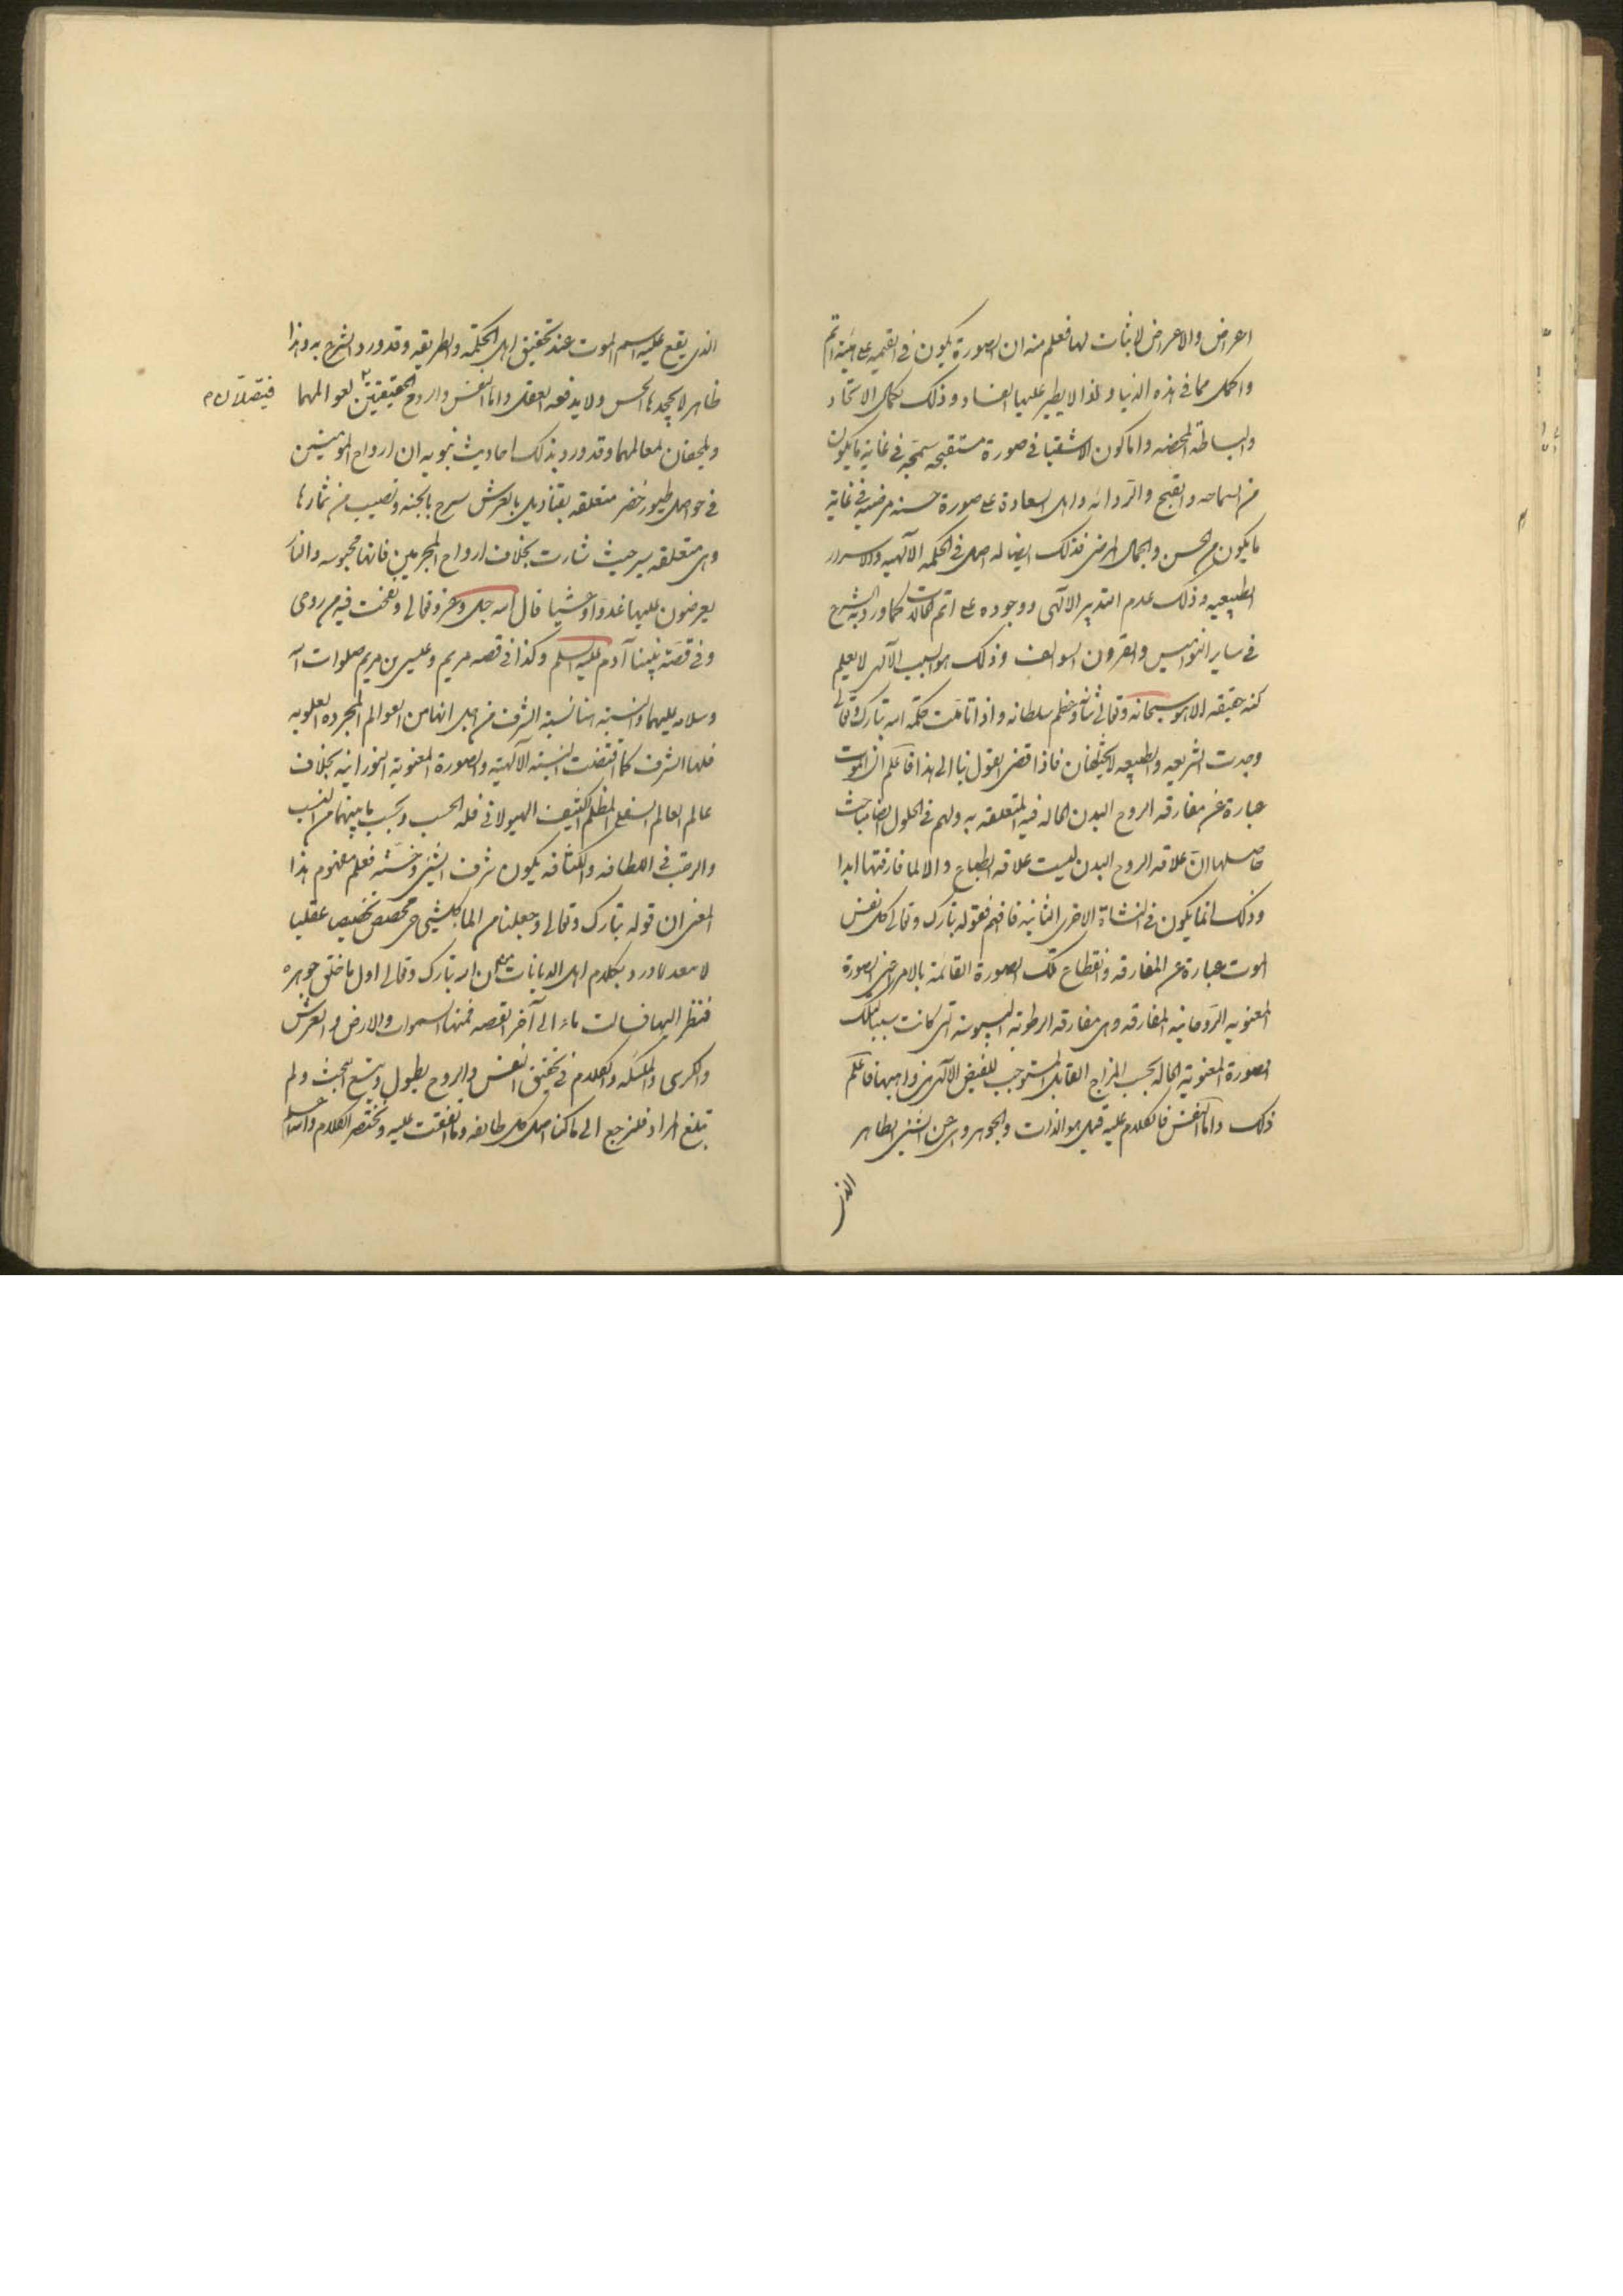 اعراض والاعراض لا ثبات لها فعلم منه ان الصورة يكون في القيمه على هيئة اتم
واكمل مما في هذه الدنيا ولهذا لا يطير عليها الفساد وذلك لكمال الاتحاد
والبساطة المحضه واما كون الاشقيا في صورة مستقبحه سمجه في غاية ما يكون
من السماجه والقبح والرداته واهل السعادة على صورة حسنه مرضيه في غاية
ما يكون من الحسن والجمال المرضى فذلك ايضا له اصل في الحكمه الآلهيه والاسرار
الطبيعيه وذلك عدم التدبير الآلهى ووجوده على اتم الحالات كما ورد به الشرح
في ساير النواميس والقرون السوالف وذلك هو السبب الآلهى لا يعلم
كنه حقيقه الا هو سبحانه وتعالى شانه وعظم سلطانه واذا تاملت حكمة الله تبارك وتعالى
وجدت الشريعه والطبيعه لا يختلفان فاذا قضى القول بنا الى هذا فاعلم ان الموت
عبارة عن مفارقه الروح البدن الحاله فيه المتعلقه به ولهم في الحلول ايضا مباحث
حاصلها ان علاقه الروح البدن ليست علاقه انطباع والا لما فارقتها ابدا
وذلك انما يكون في النشاة الاخرى الثانيه فافهم فقوله تبارك وتعالى كل نفس
الموت عبارة عن المفارقه وانقطاع تلك الصورة القائمة بالامر اعنى الصورة
المعنويه الروحانيه المفارقه وهى مفارقه الرطوبة اليبوسة التى كانت سببا لتلك
الصورة المعنوية الحاله بحسب المزاج القابل المستوجب للفيض الآلهى من واهبها فاعلم
ذلك واما النفس فالكلام عليه قيل هو الذات والجوهر وهى عين الشئ الظاهر
الذى
الذى يقع عليه اسم الموت عند تحقيق اهل الحكمه والطريقه وقد ورد الشرح به وهذا
ظاهر لا يجحدها الحس ولا يدفعه العقل واما النفس والروح الحقيقيتين لعوالمهما
فيتصلان
ويلحقان لمعالمهما وقد ورد بذلك احاديث نبويه ان ارواح المومنين
في حواصل طيور خضر متعلقه بقناديل بالعرش تسرح بالجنه وتصيب من ثمارها
وهى متعلقه تسرح حيث شات بخلاف ارواح المجرمين فانها محبوسه والنار
يعرضون عليها غدوا وعشيا قال الله جل وعز وتعالى ونفخت فيه من روحى
وفى قصة نبينا آدم عليه السلم وكذا في قصه مريم وعيسى بن مريم صلوات الله
وسلامه عليهما والنسبته هنا نسبة الشرف من اجل انها من العوالم المجرده العلويه
فلها الشرف كما اقتضت النسبته الآلهيه والصورة المعنوية النورانيه بخلاف
عالم العالم السفلى المظلم الكثيف الهيولانى فله الحسب وبحسب ما بينهما من النسب
والرتب في اللطافه والكثافه يكون شرف الشئ وخسته فعلم مفهوم هذا
المعنى ان قوله تبارك وتعالى وجعلنا من الما كل شئ حى مخصص تخصيصا عقليا
لا بعد لما ورد بكلام اهل الديانات من ان الله تبارك وتعالى اول ما خلق جوهره
فنظر اليها فسالت ماء الى آخر القصه فمنها السموات والارض والعرش
والكرسى والملئكه والكلام في تحقيق النفس والروح يطول ويتسع البحث ولم
تبلغ المراد فلنرجع الى ما كنا اصل كل طائفه وما اتفقت عليه ونختصر الكلام والله اعلم